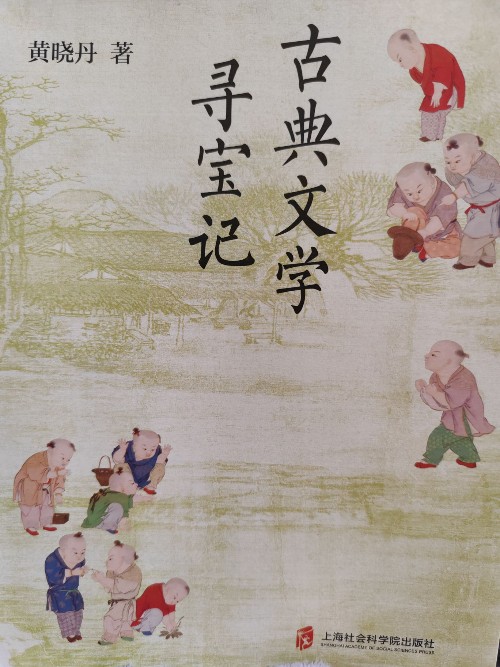 黄晓丹 著
古典文学
寻宝记
上海社会科学院出版社
SHANGHAI ACADEMY OF SOCIAL SCIENCES PRESS